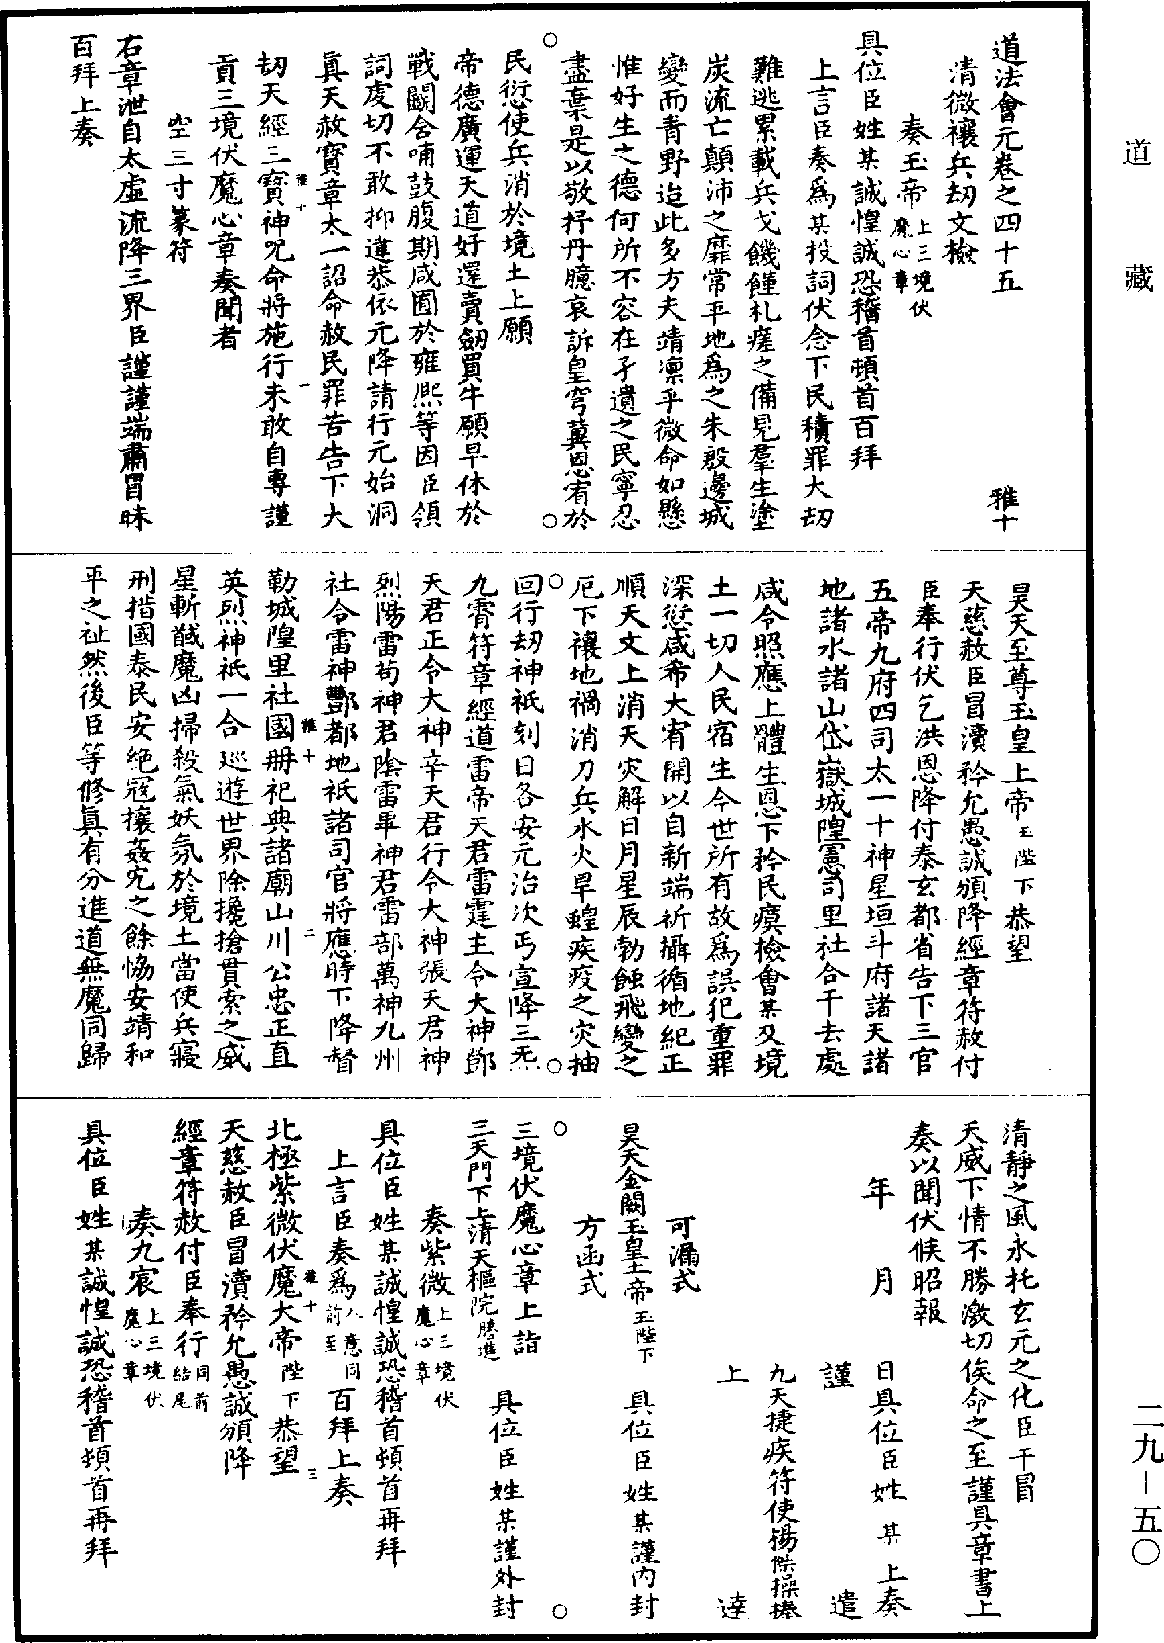 道藏
道法會元卷之四十五　雅十
清微禳兵劫文檢
奏玉帝上三境伏魔心章
具位臣姓某誠惶誠恐稽首頓首百拜
上言臣奏爲某投詞伏念下民積罪大劫
難逃累載兵戈饑饉札瘥之備見羣生塗
炭流亡顛沛之靡常平地爲之朱殷邊城
變而青野迨此多方夫靖凛乎微命如懸
惟好生之德何所不容在孑遺之民寧忍
盡棄是以敬抒丹臆哀訴皇穹冀恩宥於
民愆使兵消於境土上願
帝德廣運天道好還賣劒買牛願早休於
戰鬬含哺鼓腹期咸囿於雍熙等因臣領
詞虔切不敢抑違恭依元降請行元始洞
眞天赦寶章太一詔命赦民罪苦告下大
劫天經三寶神咒命將施行未敢自專謹
貢三境伏魔心章奏聞者
空三寸篆符
右章泄自太虛流降三界臣謹謹端肅冒昧
百拜上奏
昊天至尊玉皇上帝玉陛下恭望
天慈赦臣冒瀆矜允愚誠頒降經章符赦付
臣奉行伏乞洪恩降付泰玄都省告下三官
五帝九府四司太一十神星垣斗府諸天諸
地諸水諸山岱嶽城隍憲司里社合千去處
咸令照應上體生恩下矜民瘼檢會某及境
土一切人民宿生今世所有故爲誤犯重罪
深愆咸希大宥開以自新端祈攝循地紀正
順天文上消天灾解日月星辰勃蝕飛變之
厄下禳地禍消刀兵水火旱蝗疾疫之灾抽
回行劫神祇刻日各安元治次丐宣降三炁
九霄符章經道雷帝天君雷霆主令大神鄧
天君正令大神辛天君行令大神張天君神
烈陽雷苟神君陰雷畢神君雷部萬神九州
社令雷神酆都地祇諸司官將應時下降督
勒城隍里社國册祀典諸廟山川公忠正直
英烈神祇一合巡遊世界除攙搶貫索之威
星斬馘魔凶掃殺氣妖氛於境土當使兵寢
刑措國泰民安絶寇攘姦宄之餘恊安靖和
平之祉然後臣等修眞有分進道無魔同歸
清靜之風永托玄元之化臣干冒
天威下情不勝激切俟命之至謹具章書上
奏以聞伏候昭報
年　月　日具位臣姓某上奏
謹　遣
九天捷疾符使楊傑操捧
上　達
可漏式
昊天金闕玉皇上帝玉陛下　具位臣姓某謹内封
方函式
三境伏魔心章上詣
三天門下上清天樞院牒進　具位臣姓某謹外封
奏紫微上三境伏魔心章
具位臣姓某誠惶誠恐稽首頓首再拜
上言臣奏爲入意同前至百拜上奏
北極紫微伏魔大帝陛下恭望
天慈赦臣冒瀆矜允愚誠頒降
經章符赦付臣奉行同前結尾
奏九宸上三境伏魔心章
具位臣姓某誠惶誠恐稽首頓首再拜
雅十　一
雅十　二
雅十　三
二九－五〇